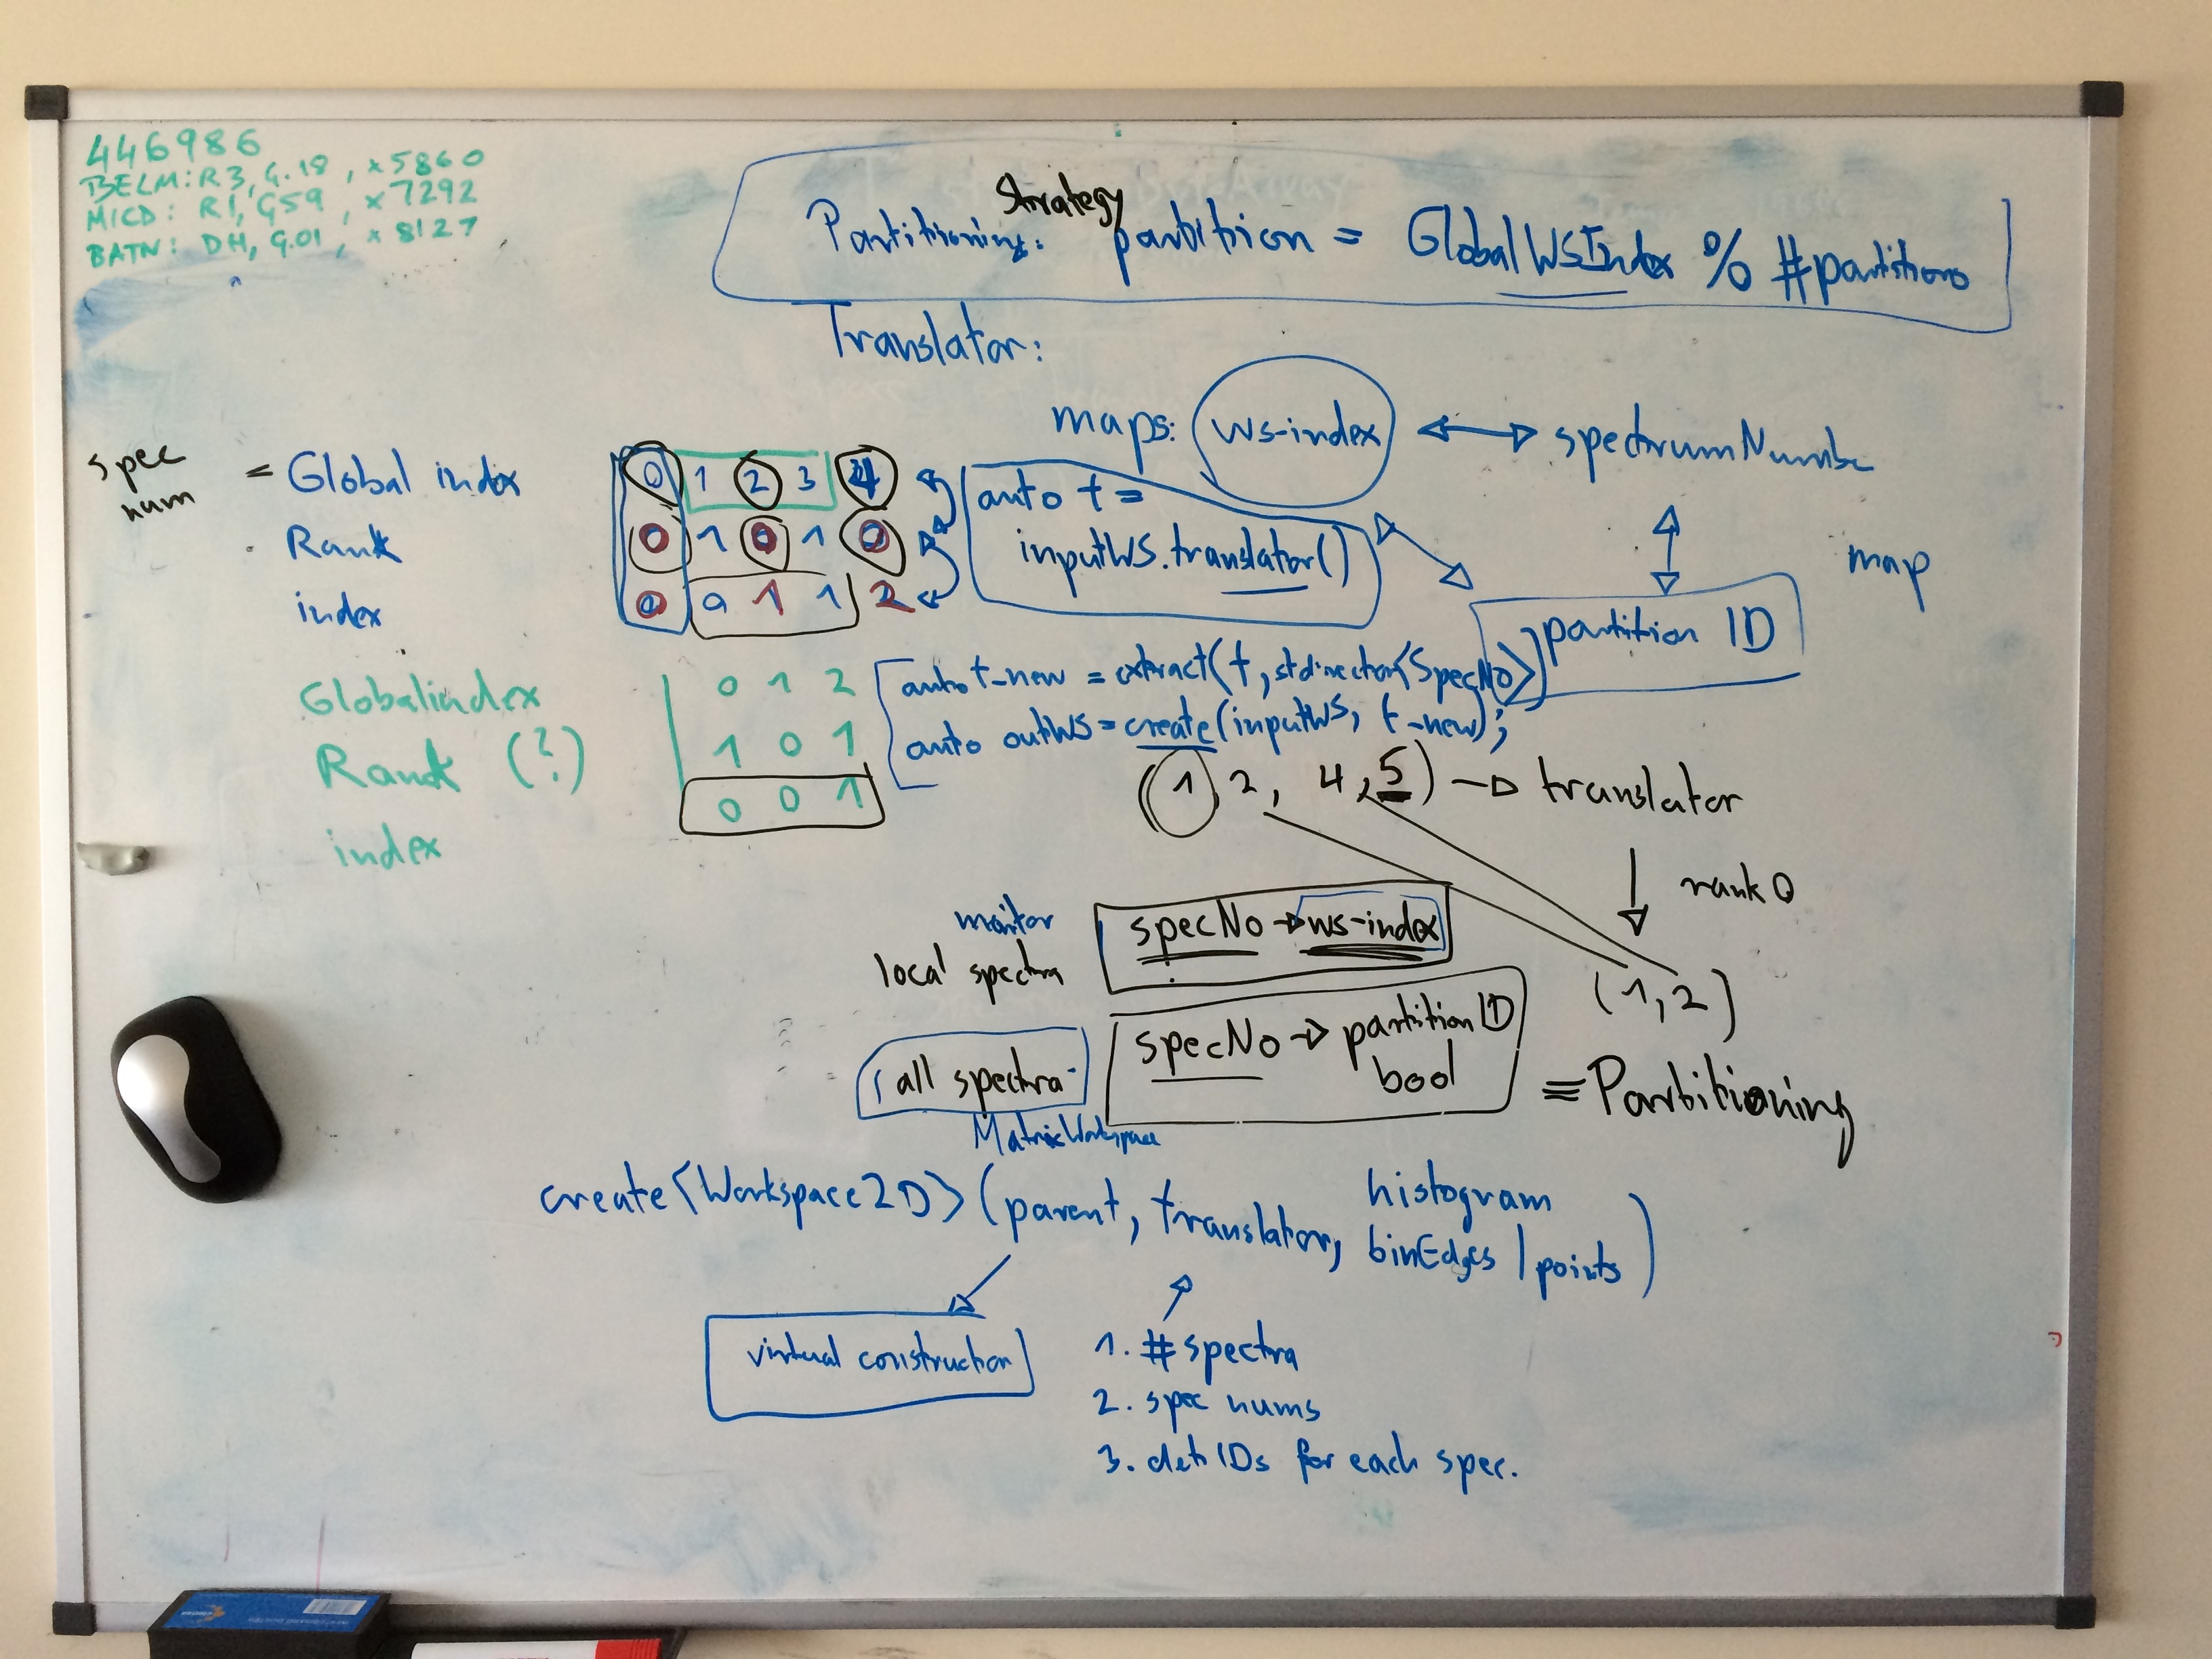 446986
BELM: R3, G.18, x5860
MICD: R1, G59, x7292
BATN: DH, G.01, x8127
Strategy
Partitioning: partition = GlobalWSIndex % #partitions
Translator:
maps: ws-index ↔ spectrumNumber
spec num = Global index 0 1 2 3 4
Rank 0 1 0 1 0
index 0 0 1 1 2
auto t =
inputWS.translator()
map
partition ID
Globalindex 0 1 2
Rank (?) 1 0 1
index 0 0 1
auto t-new = extract(t, std::vector<SpecNo>)
auto outWS = create(inputWS, t-new);
(1, 2, 4, 5) → translator
rank 0
(1, 2)
monitor
local spectra
specNo → ws-index
all spectra
specNo → partition ID
bool
≡ Partitioning
MatrixWorkspace
create<Workspace2D>(parent, translator, histogram
binEdges / points)
virtual constructor
1. # spectra
2. spec nums
3. det IDs for each spec.